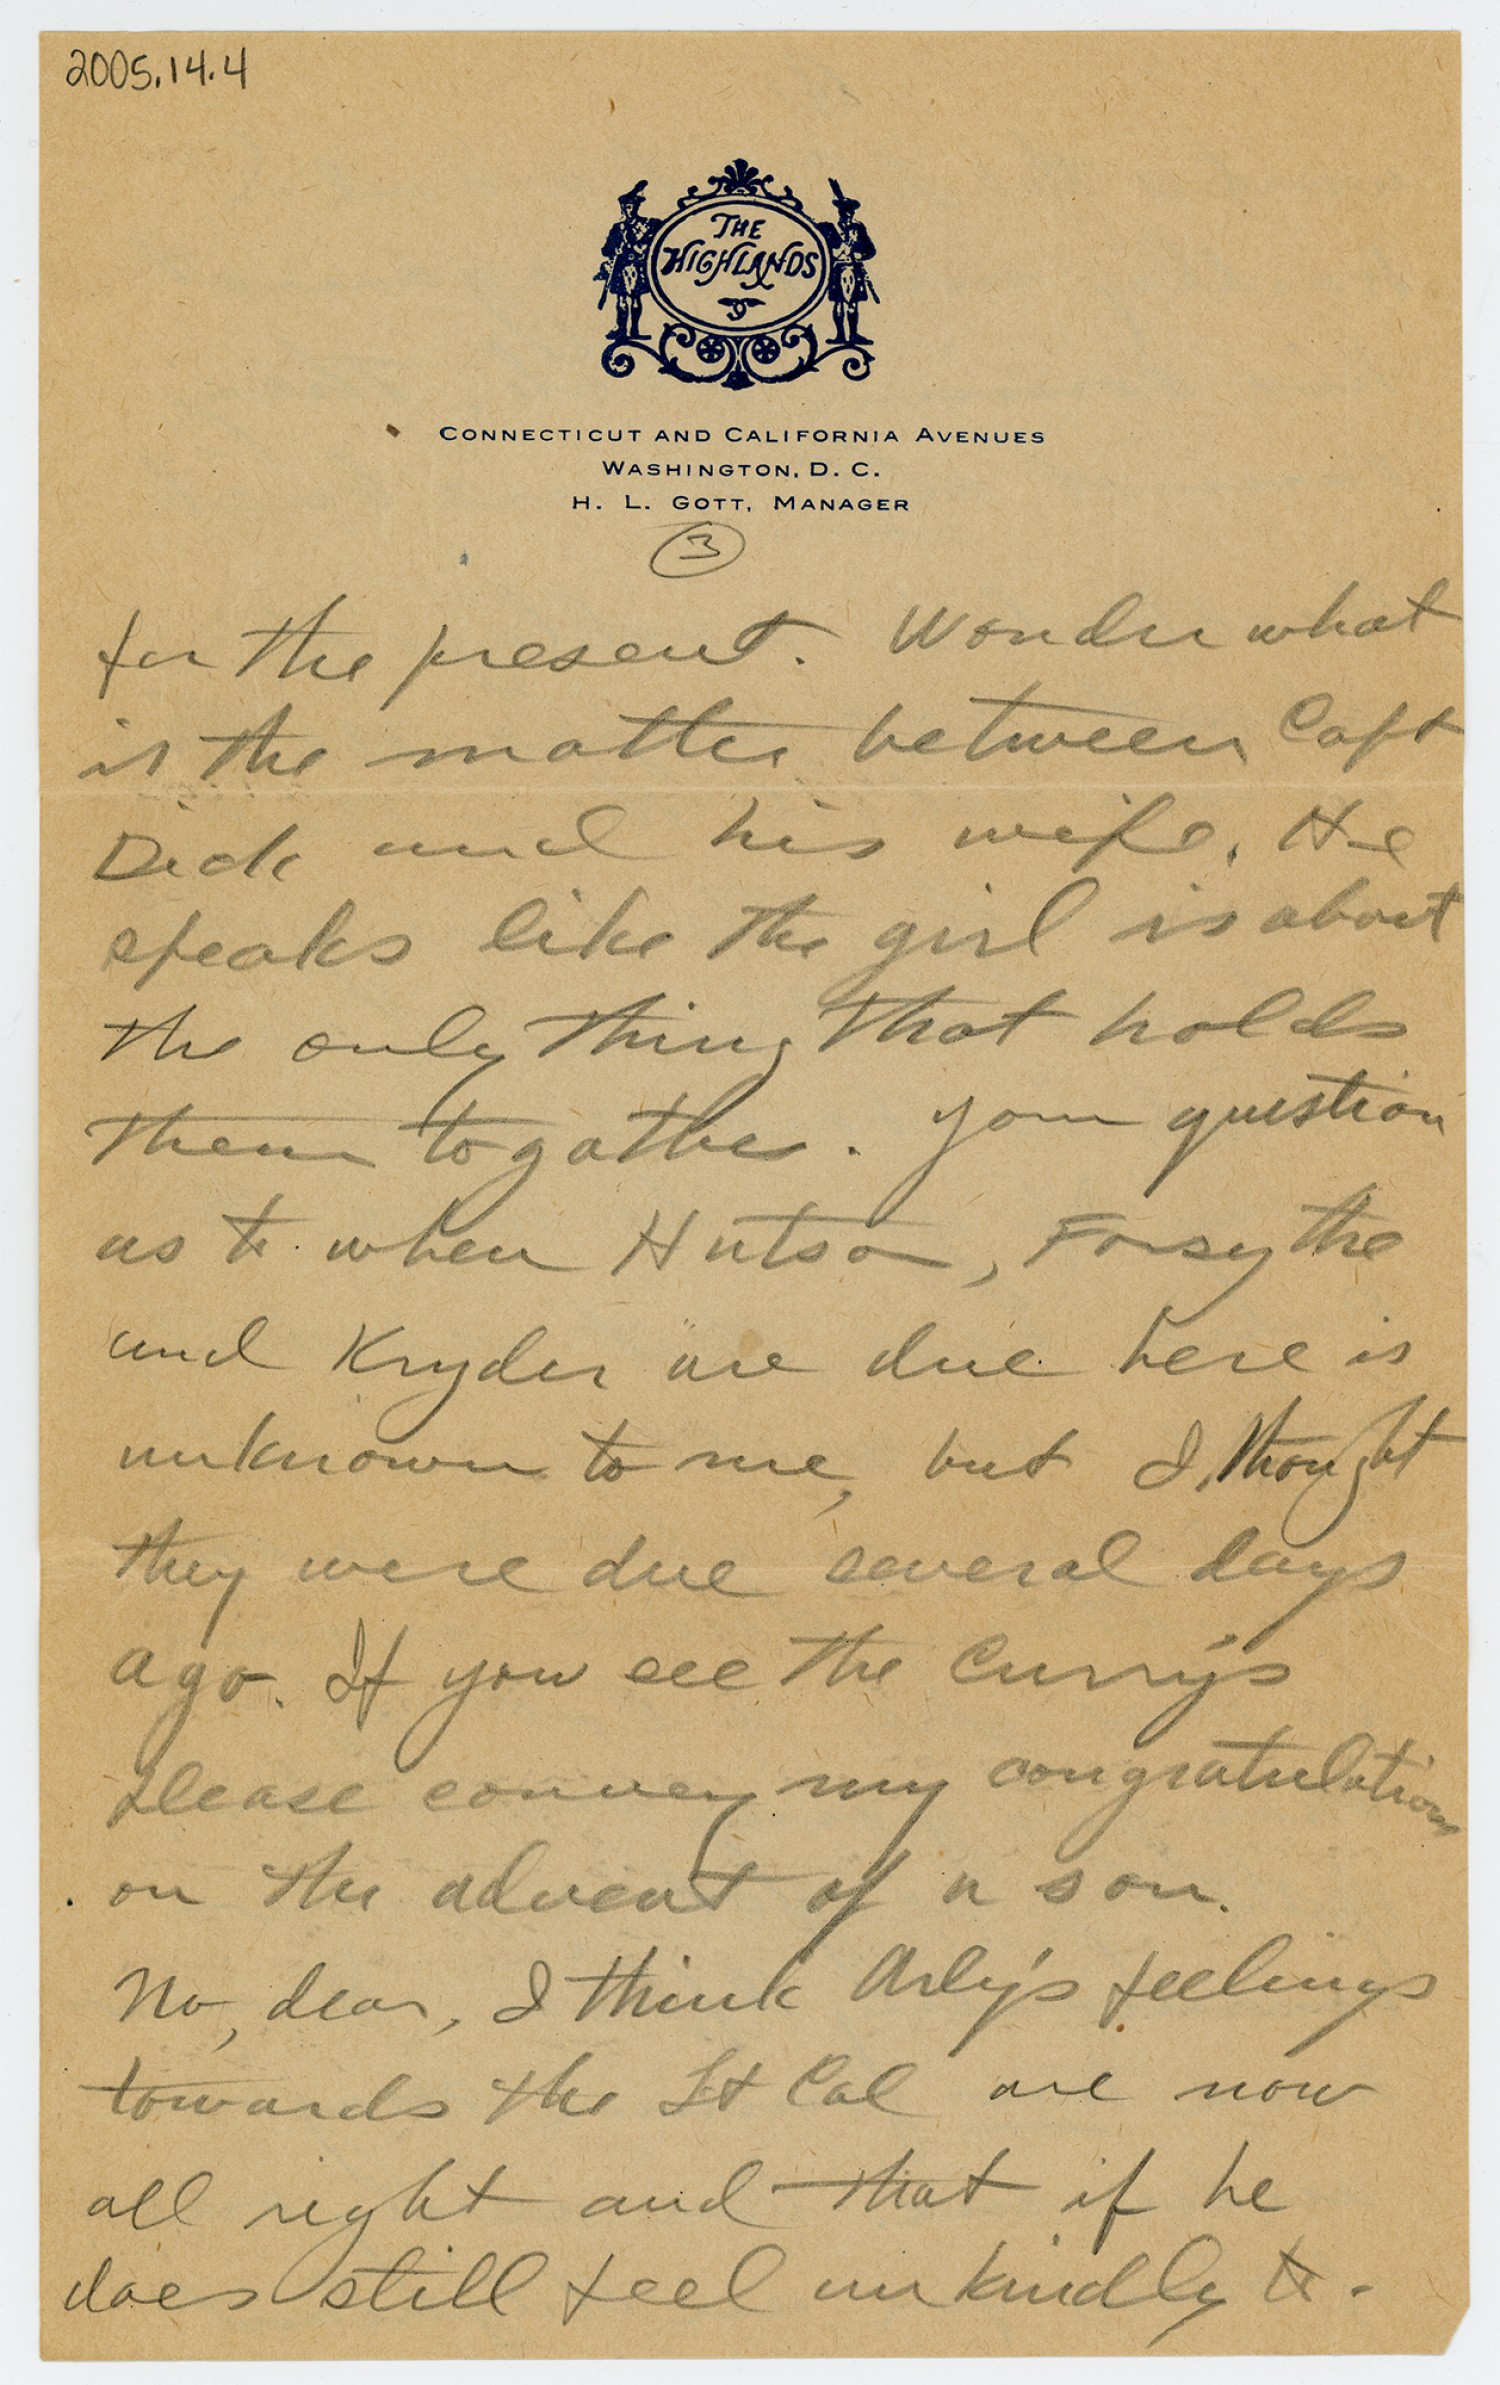 2005.14.4
THE
HIGHLANDS
CONNECTICUT AND CALIFORNIA AVENUES
WASHINGTON, D. C.
H. L. GOTT, MANAGER
3
for the present. Wonder what
is the matter between Capt
Dick and his wife. He
speaks like the girl is about
the only thing that holds
them together. Your question
as to when Hutson, Forsythe
and Kryder are due here is
unknown to me, but I thought
they were due several days
ago. If you see the Curry's
please convey my congratulations
on the advent of a son.
No, dear, I think Arly's feelings
towards the Lt Col are now
all right and that if he
does still feel unkindly to-